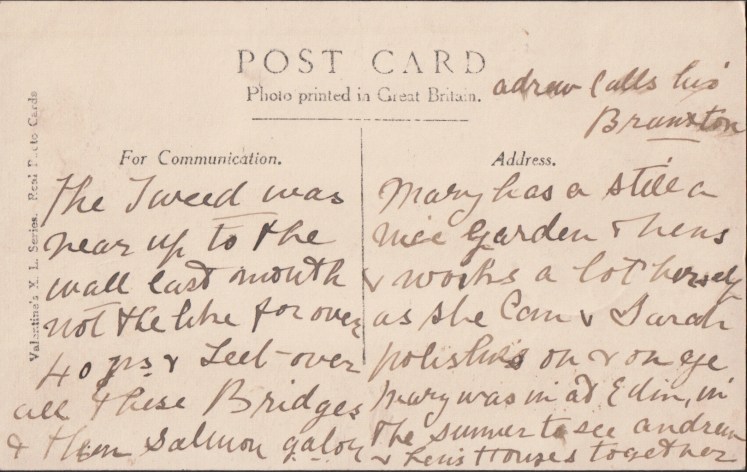 POST CARD
Photo printed in Great Britain.
adrew Calls his
Branxton
For Communication.
Address.
Valentine's X. L. Series. Real Photo Cards
The Tweed was
near up to the
wall last month
not the like for over
40 yrs & Leet over
all these Bridges
& them Salmon galou
Mary has a still a
nice Garden & hens
& works a lot hersely
as she Can & Sarah
polishes on & on ye
Mary was in at Edin, in
the sumer to see andrew
& hens Houses together